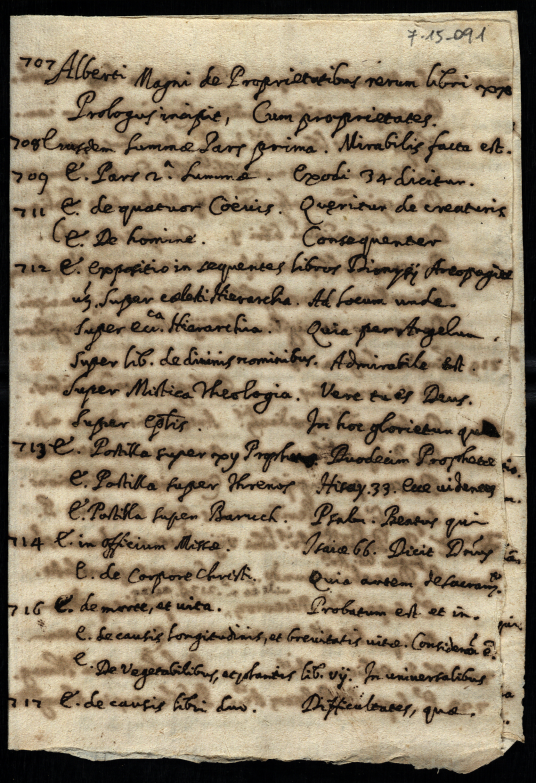 7-15-091
707 Alberti Magni de Proprietatibus rerum libri
Prologus incipit, Cum proprietates.
708 Eiusdem Summæ Pars prima. Mirabilis facta est.
709 E. Pars 2.ª Summæ. Exodi 34 dicitur.
711 E. de quatuor Coevis. Queritur de creaturis
E. De homine. Consequenter
712 E. expositio in sequentes libros Dionysij Areopagitæ
Super celesti Hierarchia. Ad locum unde.
Super ecca. Hierarchia. Quia per Angelum.
Super lib. de divinis nominibus. Admirabile est.
Super Mistica Theologia. Vere tu es Deus.
Super eptis. In hoc glorietur qui
713 E. Postilla super xij Prophetas Duodecim Prophetæ
E. Postilla super Threnos Hisay. 33. Ecce videntes
E. Postilla super Baruch. Psalm. Beatus qui
714 E. in officium Missæ. Isaiæ 66. Dicit Dnus
E. de Corpore Christi. Quia autem de sacram.
716 E. de morte, et vita. Probatum est et in.
E. de causis longitudinis, et brevitatis vitæ. Considerandum e.
E. De Vegetabilibus, ac plantis lib. vij. In universalibus
717 E. de causis libri duo. Difficultates, quæ.